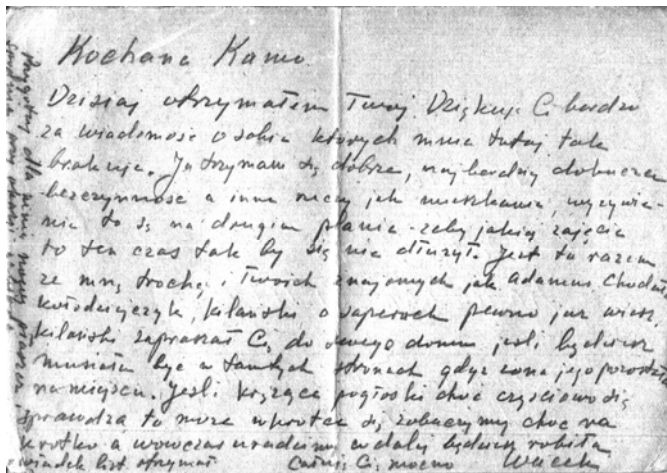 Kochana Kamo
Dzisiaj otrzymałem Twój Dziękuję Ci bardzo
za wiadomość o sobie których mnie tutaj tak
brakuje. Ja trzymam się dobrze, najbardziej dokucza
bezczynność a inne rzeczy jak mieszkanie, wyżywie-
nie to są na drugim planie żeby jakieś zajęcie
to ten czas tak by się nie dłużył. Jest tu razem
ze mną trochę i Twoich znajomych jak Adamus,
Kilański o saperach pewno już wiesz.
Kilański zapraszał Cię do swego domu jeśli będziesz
musiała być w tamtych stronach gdyż żona jego pozostała
na miejscu. Jeśli krążące pogłoski choć częściowo się
sprawdzą to może wkrótce się zobaczymy choć na
krótko a wówczas uradzimy co dalej będziesz robiła
list otrzymał Całuję Cię mocno Wacek
Przygotuj dla mnie mój płaszcz